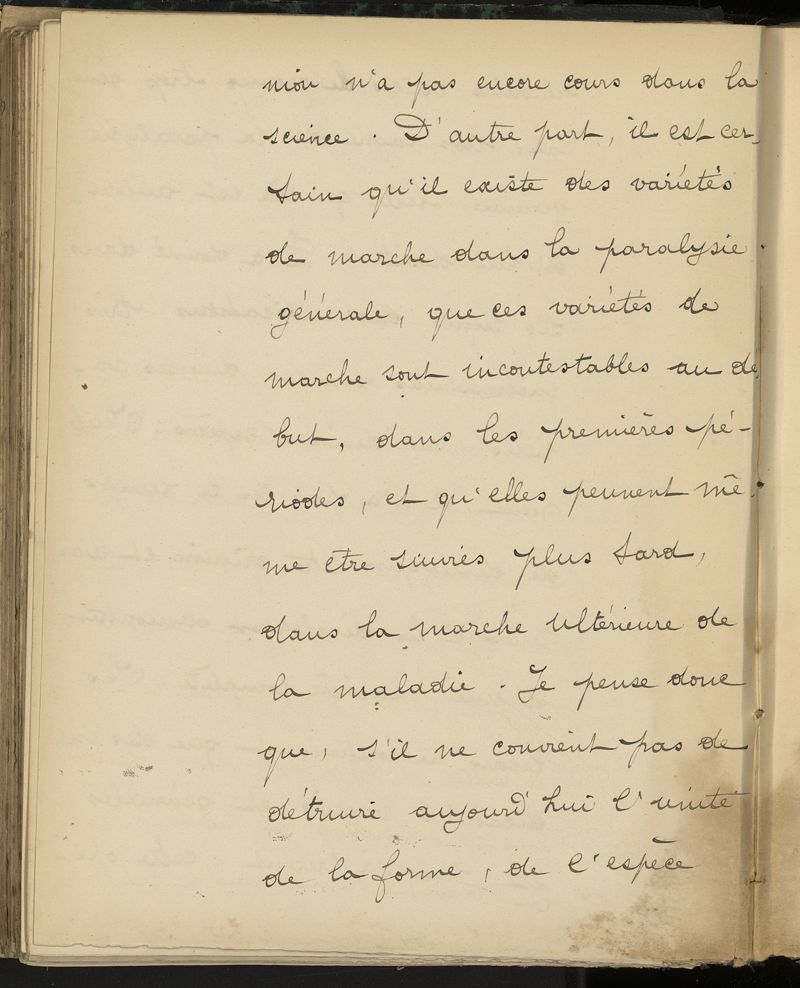 nion n'a pas encore cours dans la
science. D'autre part, il est cer-
tain qu'il existe des variétés
de marche dans la paralysie
générale, que ces variétés de
marche sont incontestables au dé
but, dans les premières pé-
riodes, et qu'elles peuvent mê-
me être suivies plus tard,
dans la marche ultérieure de
la maladie. Je pense donc
que, s'il ne convient pas de
détruire aujourd'hui l'unité
de la forme, de l'espèce